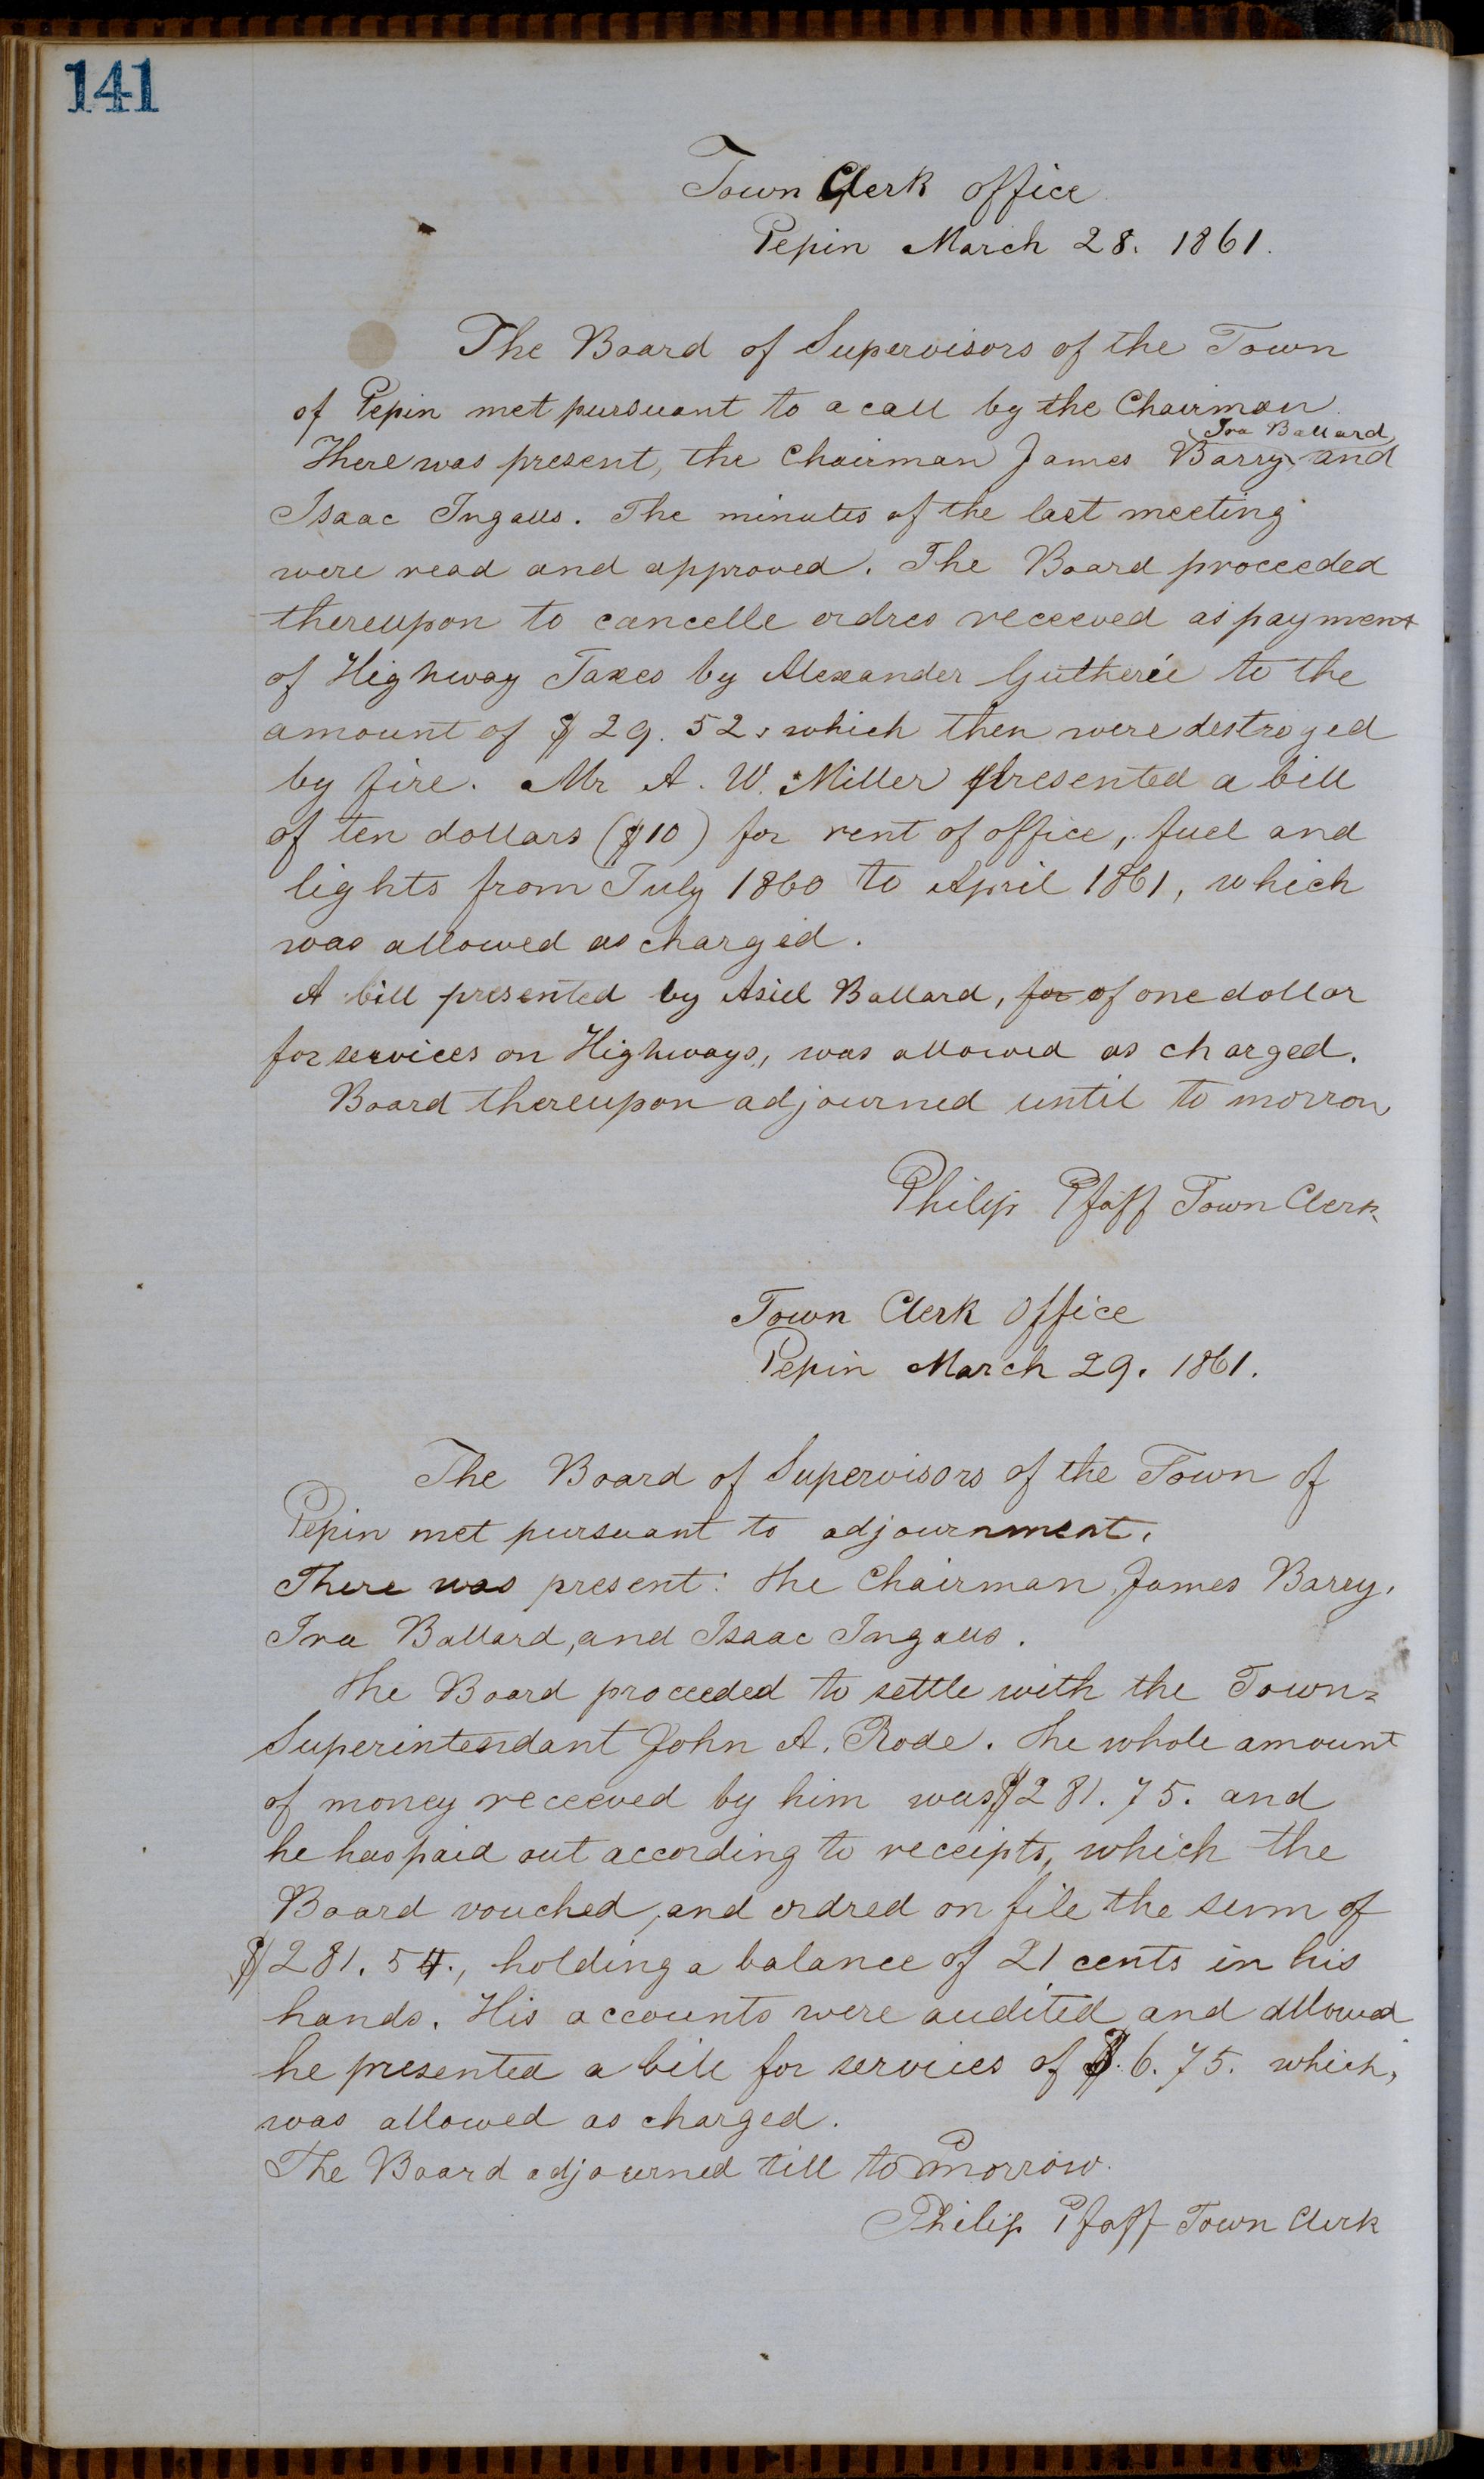 141
Town Clerk office
Pepin March 28. 1861.
The Board of Supervisors of the Town
of Pepin met pursuant to a call by the Chairman.
Ira Ballard,
There was present, the Chairman James Barry, and
Isaac Ingalls. The minutes of the last meeting
were read and approved. The Board proceeded
thereupon to cancelle ordres receeved as payment
of Highway Taxes by Alexander Gutherie to the
amount of $29.52, which then were destroyed
by fire. Mr A. W. Miller presented a bill
of ten dollars ($10) for rent of office, fuel and
lights from July 1860 to April 1861, which
was allowed as charged.
A bill presented by Asiel Ballard, for of one dollar
for services on Highways, was allowed as charged.
Board thereupon adjourned until to morrow,
Philip Pfaff Town Clerk
Town Clerk Office
Pepin March 29. 1861.
The Board of Supervisors of the Town of
Pepin met pursuant to adjournment.
There was present: the Chairman, James Barry,
Ira Ballard, and Isaac Ingalls.
The Board proceeded to settle with the Town=
Superintendant John A. Rode. The whole amount
of money receeved by him was $281.75. and
he has paid out according to receipts, which the
Board vouched, and ordred on file the sum of
$281.54., holding a balance of 21 cents in his
hands. His accounts were audited and allowed
he presented a bill for services of $.6.75. which,
was allowed as charged.
The Board adjourned till to morrow.
Philip Pfaff Town Clerk